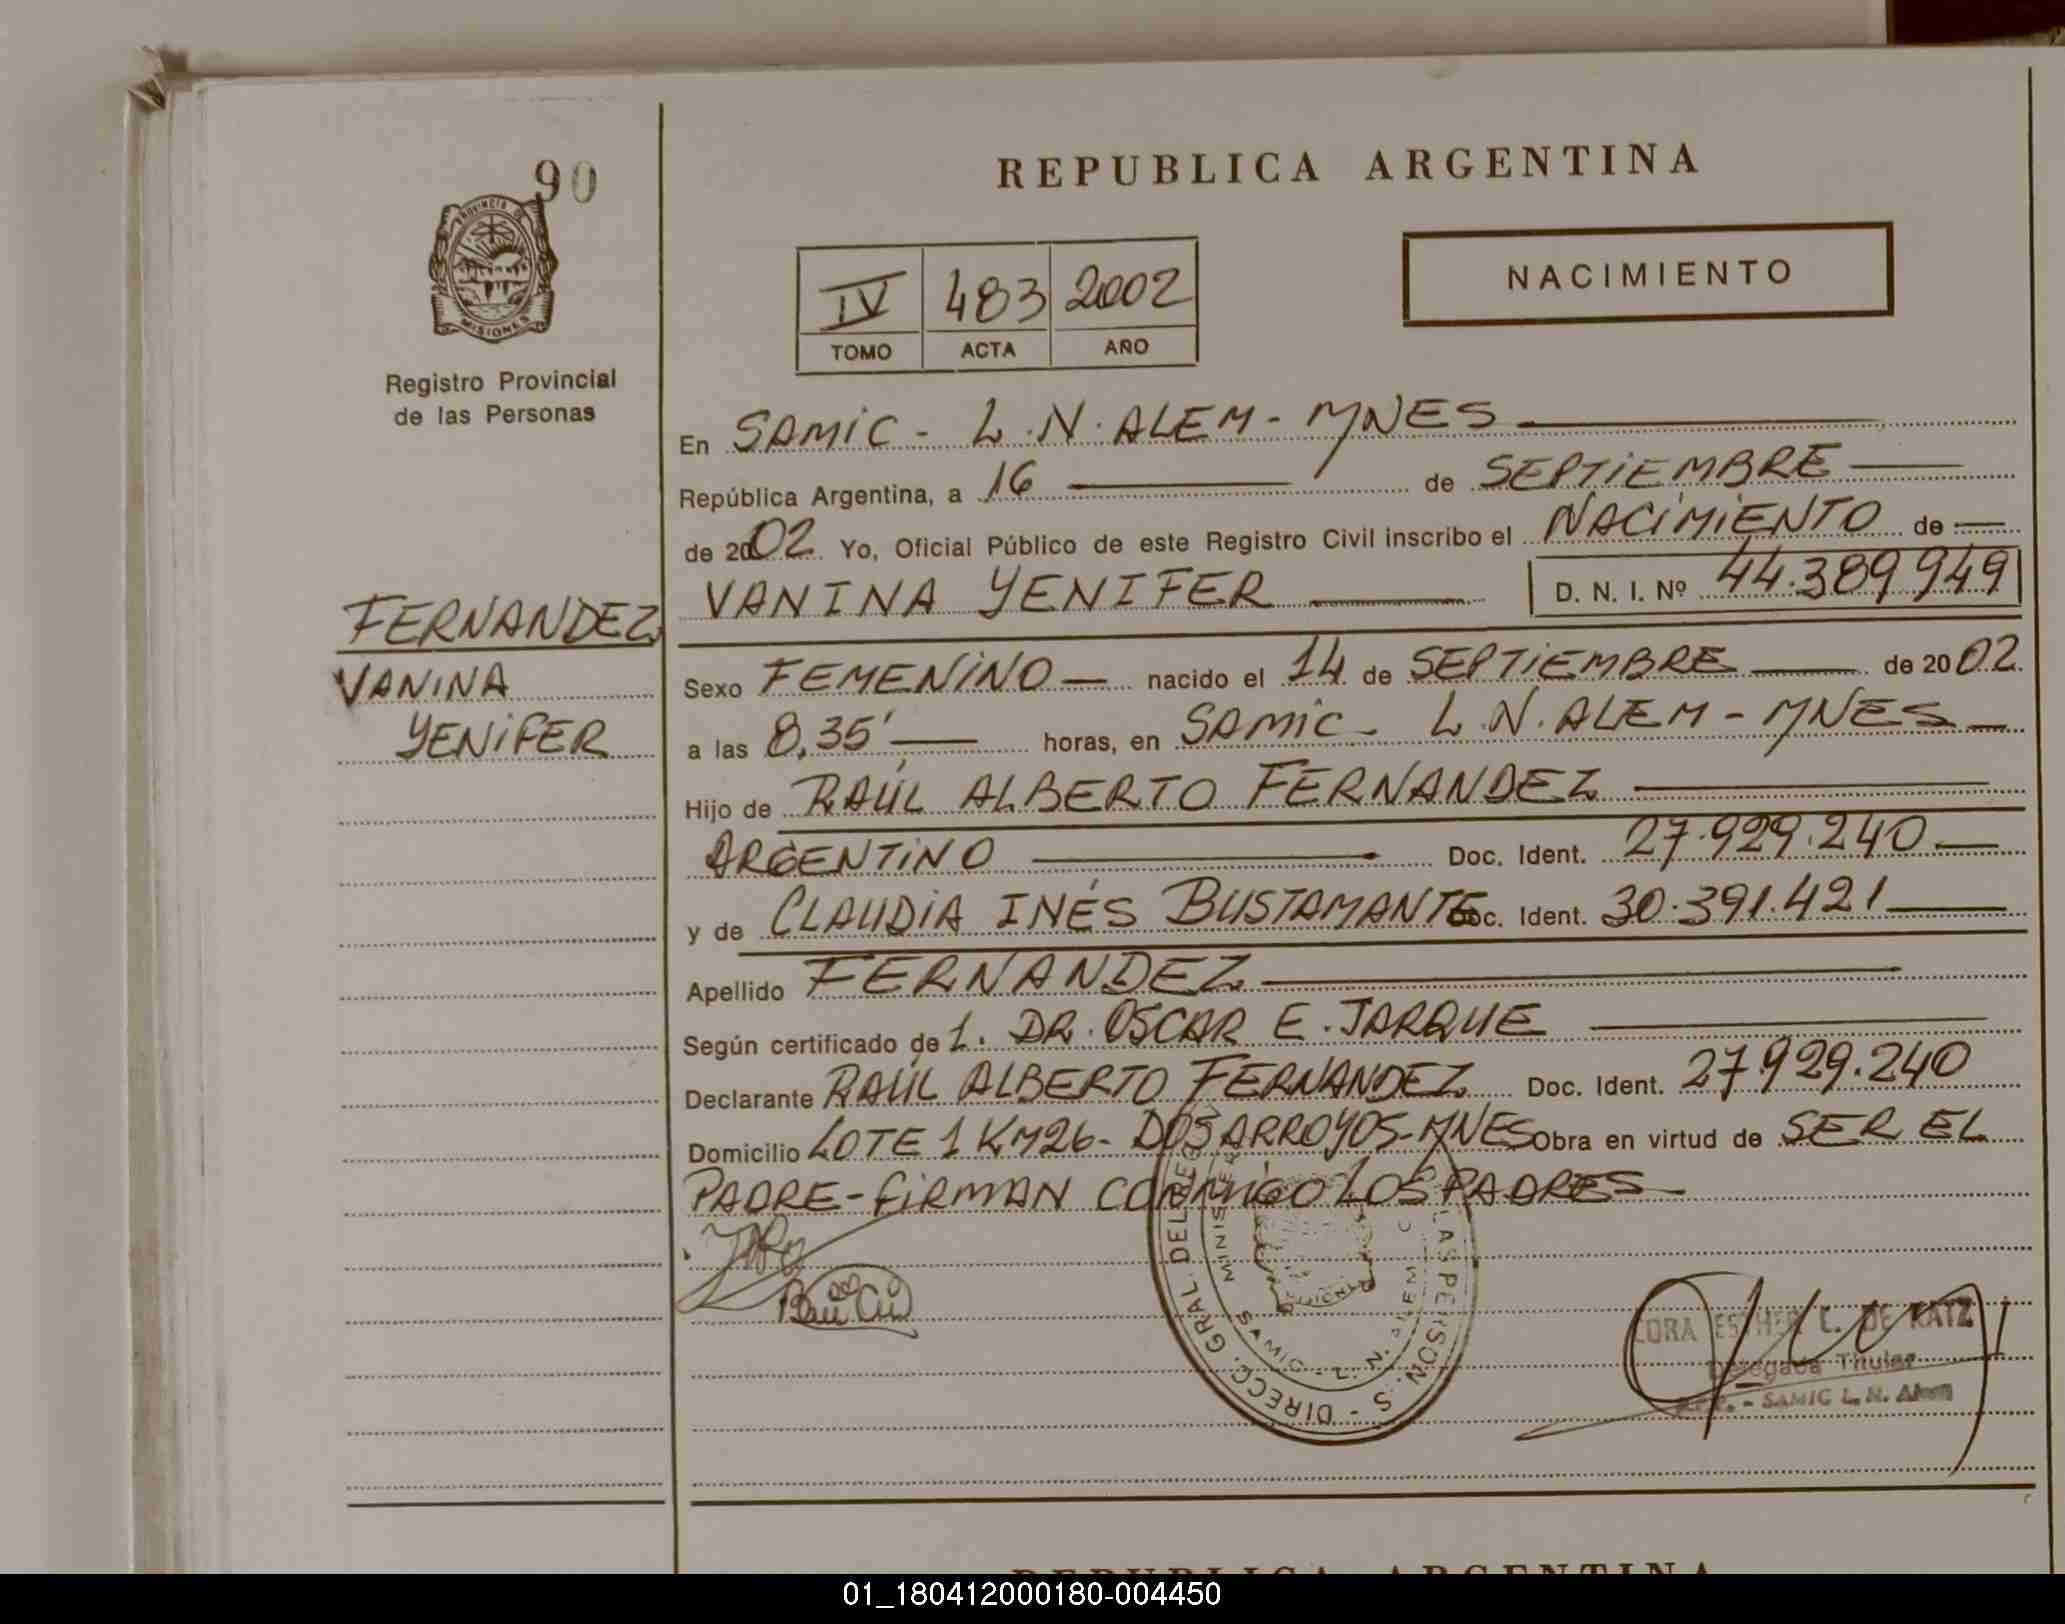 90
PROVINCIA DE
MISIONES
Registro Provincial
de las Personas
FERNANDEZ
VANINA
YENIFER
REPUBLICA ARGENTINA
IV 483 2002
TOMO ACTA AÑO
NACIMIENTO
En SAMIC - L.N. ALEM - MNES
República Argentina, a 16 de SEPTIEMBRE
de 2002 Yo, Oficial Público de este Registro Civil inscribo el NACIMIENTO de
VANINA YENIFER D. N. I. Nº 44.389949
Sexo FEMENINO nacido el 14 de SEPTIEMBRE de 2002.
a las 8,35' horas, en SAMIC - L.N. ALEM - MNES
Hijo de RAÚL ALBERTO FERNANDEZ
ARGENTINO Doc. Ident. 27.929.240
y de CLAUDIA INÉS BUSTAMANTE Doc. Ident. 30.391.421
Apellido FERNANDEZ
Según certificado de 1. DR. OSCAR E. JARQUE
Declarante RAÚL ALBERTO FERNANDEZ Doc. Ident. 27.929.240
Domicilio LOTE 1 KM26 - DOS ARROYOS - MNES Obra en virtud de SER EL
PADRE - FIRMAN CONMIGO LOS PADRES
DIRECC. GRAL. DEL REG. LAS PERSON S
ESTHER L. DE KATZ
Delegada Titular
- SAMIC L. N. Alem
REPUBLICA ARGENTINA
01_180412000180-004450